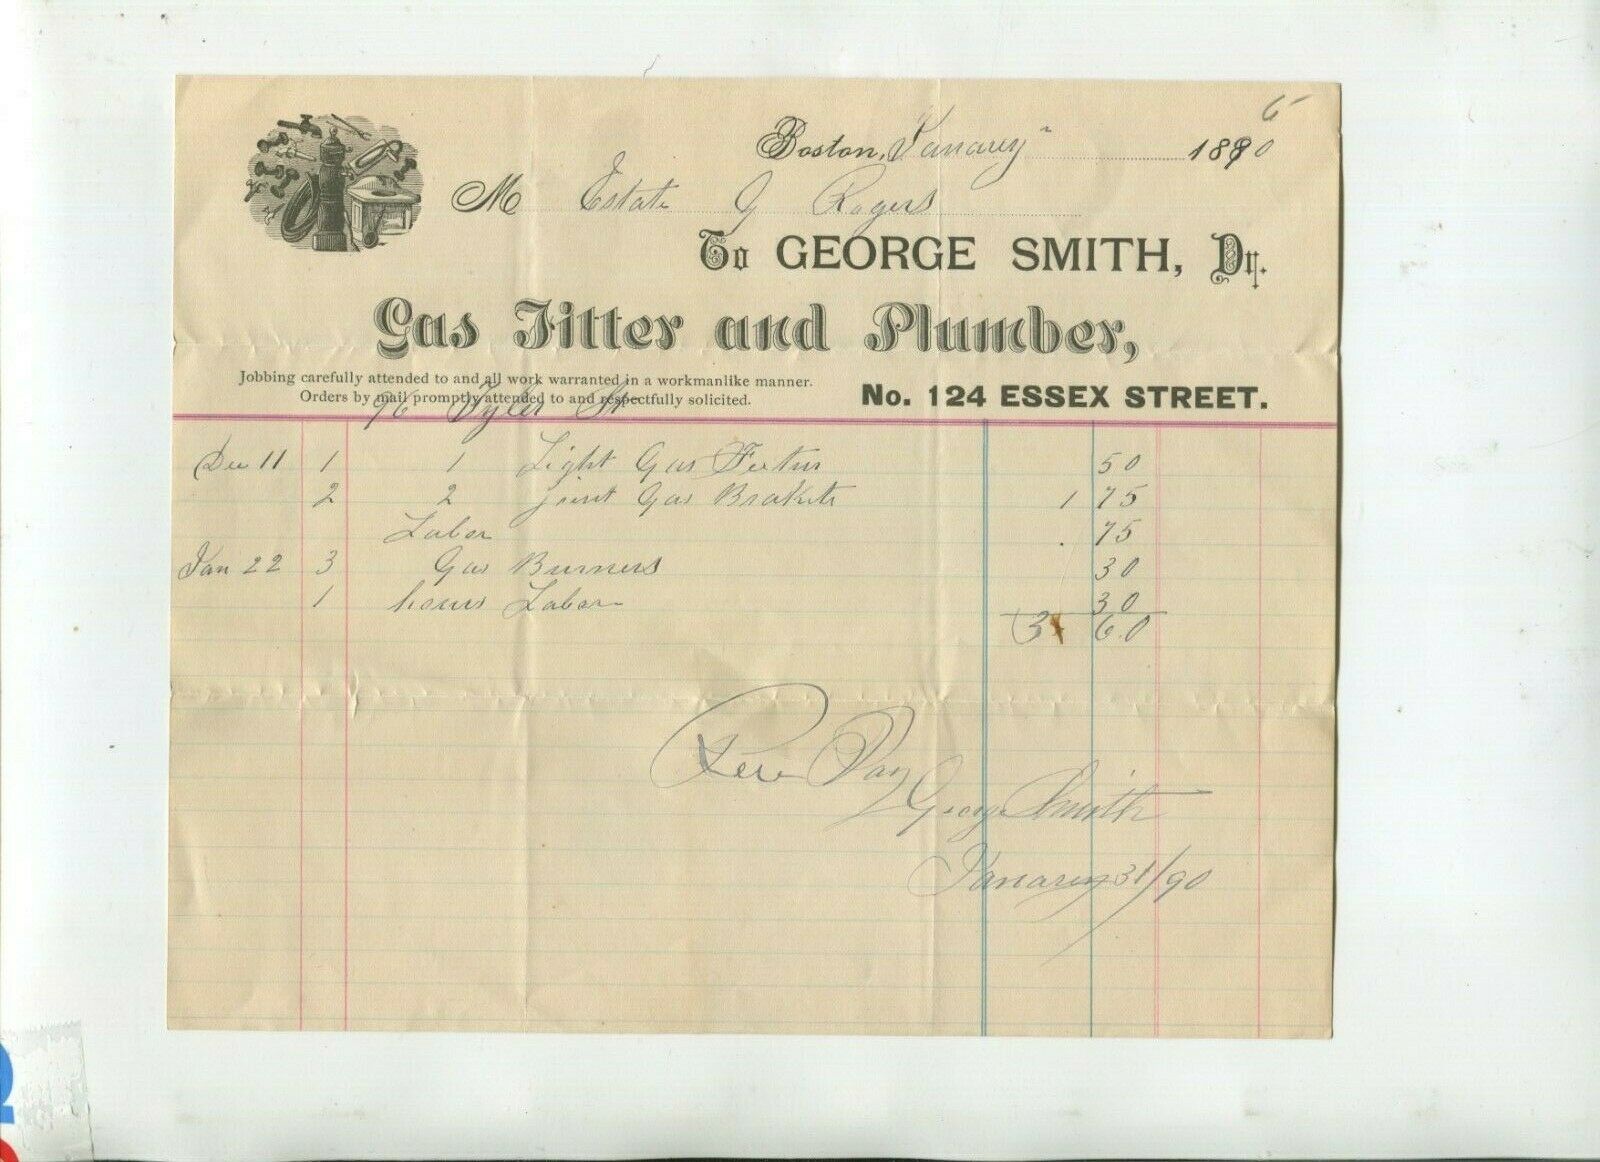 6
Boston, Janarey " 1890
M Estate G Rogers
To GEORGE SMITH, Dr.
Gas Fitter and Plumber,
Jobbing carefully attended to and all work warranted in a workmanlike manner.
Orders by mail promptly attended to and respectfully solicited.
No. 124 ESSEX STREET.
96 Tyler St
Dec 11 1 1 Light Gas 50
2 2 joint Gas Brakets 1 75
Labor 75
Jan 22 3 Gas Burners 30
1 hours Labor 30
3 60
Rece Pay
George Smith
Janarey 31/90